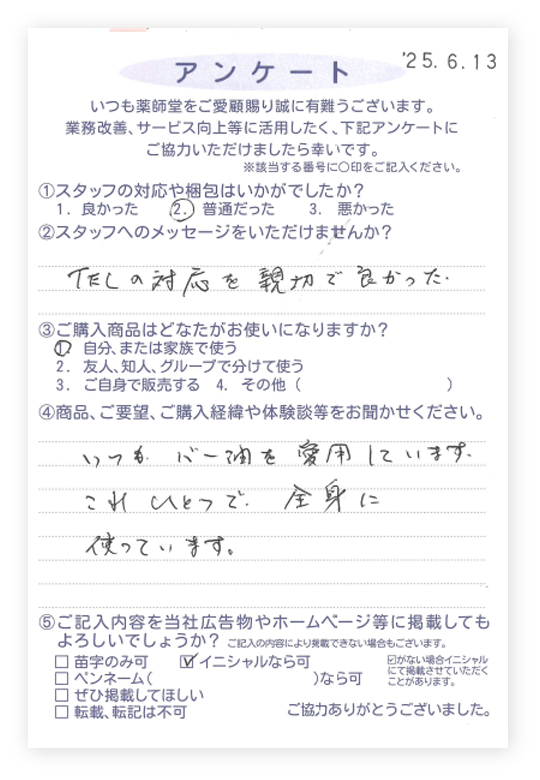 '25.6.13
アンケート
いつも薬師堂をご愛顧賜り誠に有難うございます。
業務改善、サービス向上等に活用したく、下記アンケートに
ご協力いただけましたら幸いです。
※該当する番号に○印をご記入ください。
①スタッフの対応や梱包はいかがでしたか?
1. 良かった 2. 普通だった 3. 悪かった
②スタッフへのメッセージをいただけませんか?
TELの対応を親切で良かった.
③ご購入商品はどなたがお使いになりますか?
1. 自分、または家族で使う
2. 友人、知人、グループで分けて使う
3. ご自身で販売する 4. その他( )
④商品、ご要望、ご購入経緯や体験談等をお聞かせください。
いつも バー油を愛用しています.
これ ひとつで. 全身に
使っています。
⑤ご記入内容を当社広告物やホームページ等に掲載しても
よろしいでしょうか? ご記入の内容により掲載できない場合もございます。
□ 苗字のみ可 ☑イニシャルなら可
□ ペンネーム( )なら可
□ ぜひ掲載してほしい
□ 転載、転記は不可
☑がない場合イニシャル
にて掲載させていただく
ことがあります。
ご協力ありがとうございました。